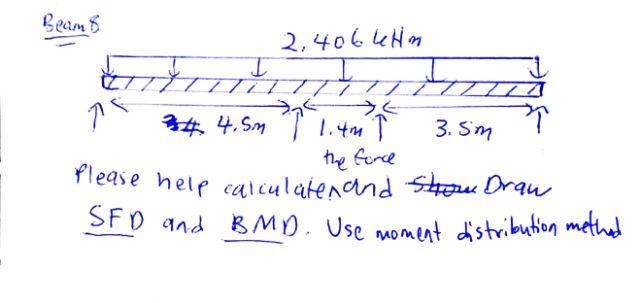 Beam 8
2,406 kN/m
4.5m 1.4m 3.5m
the force
Please help calculate and Draw
SFD and BMD. Use moment distribution method